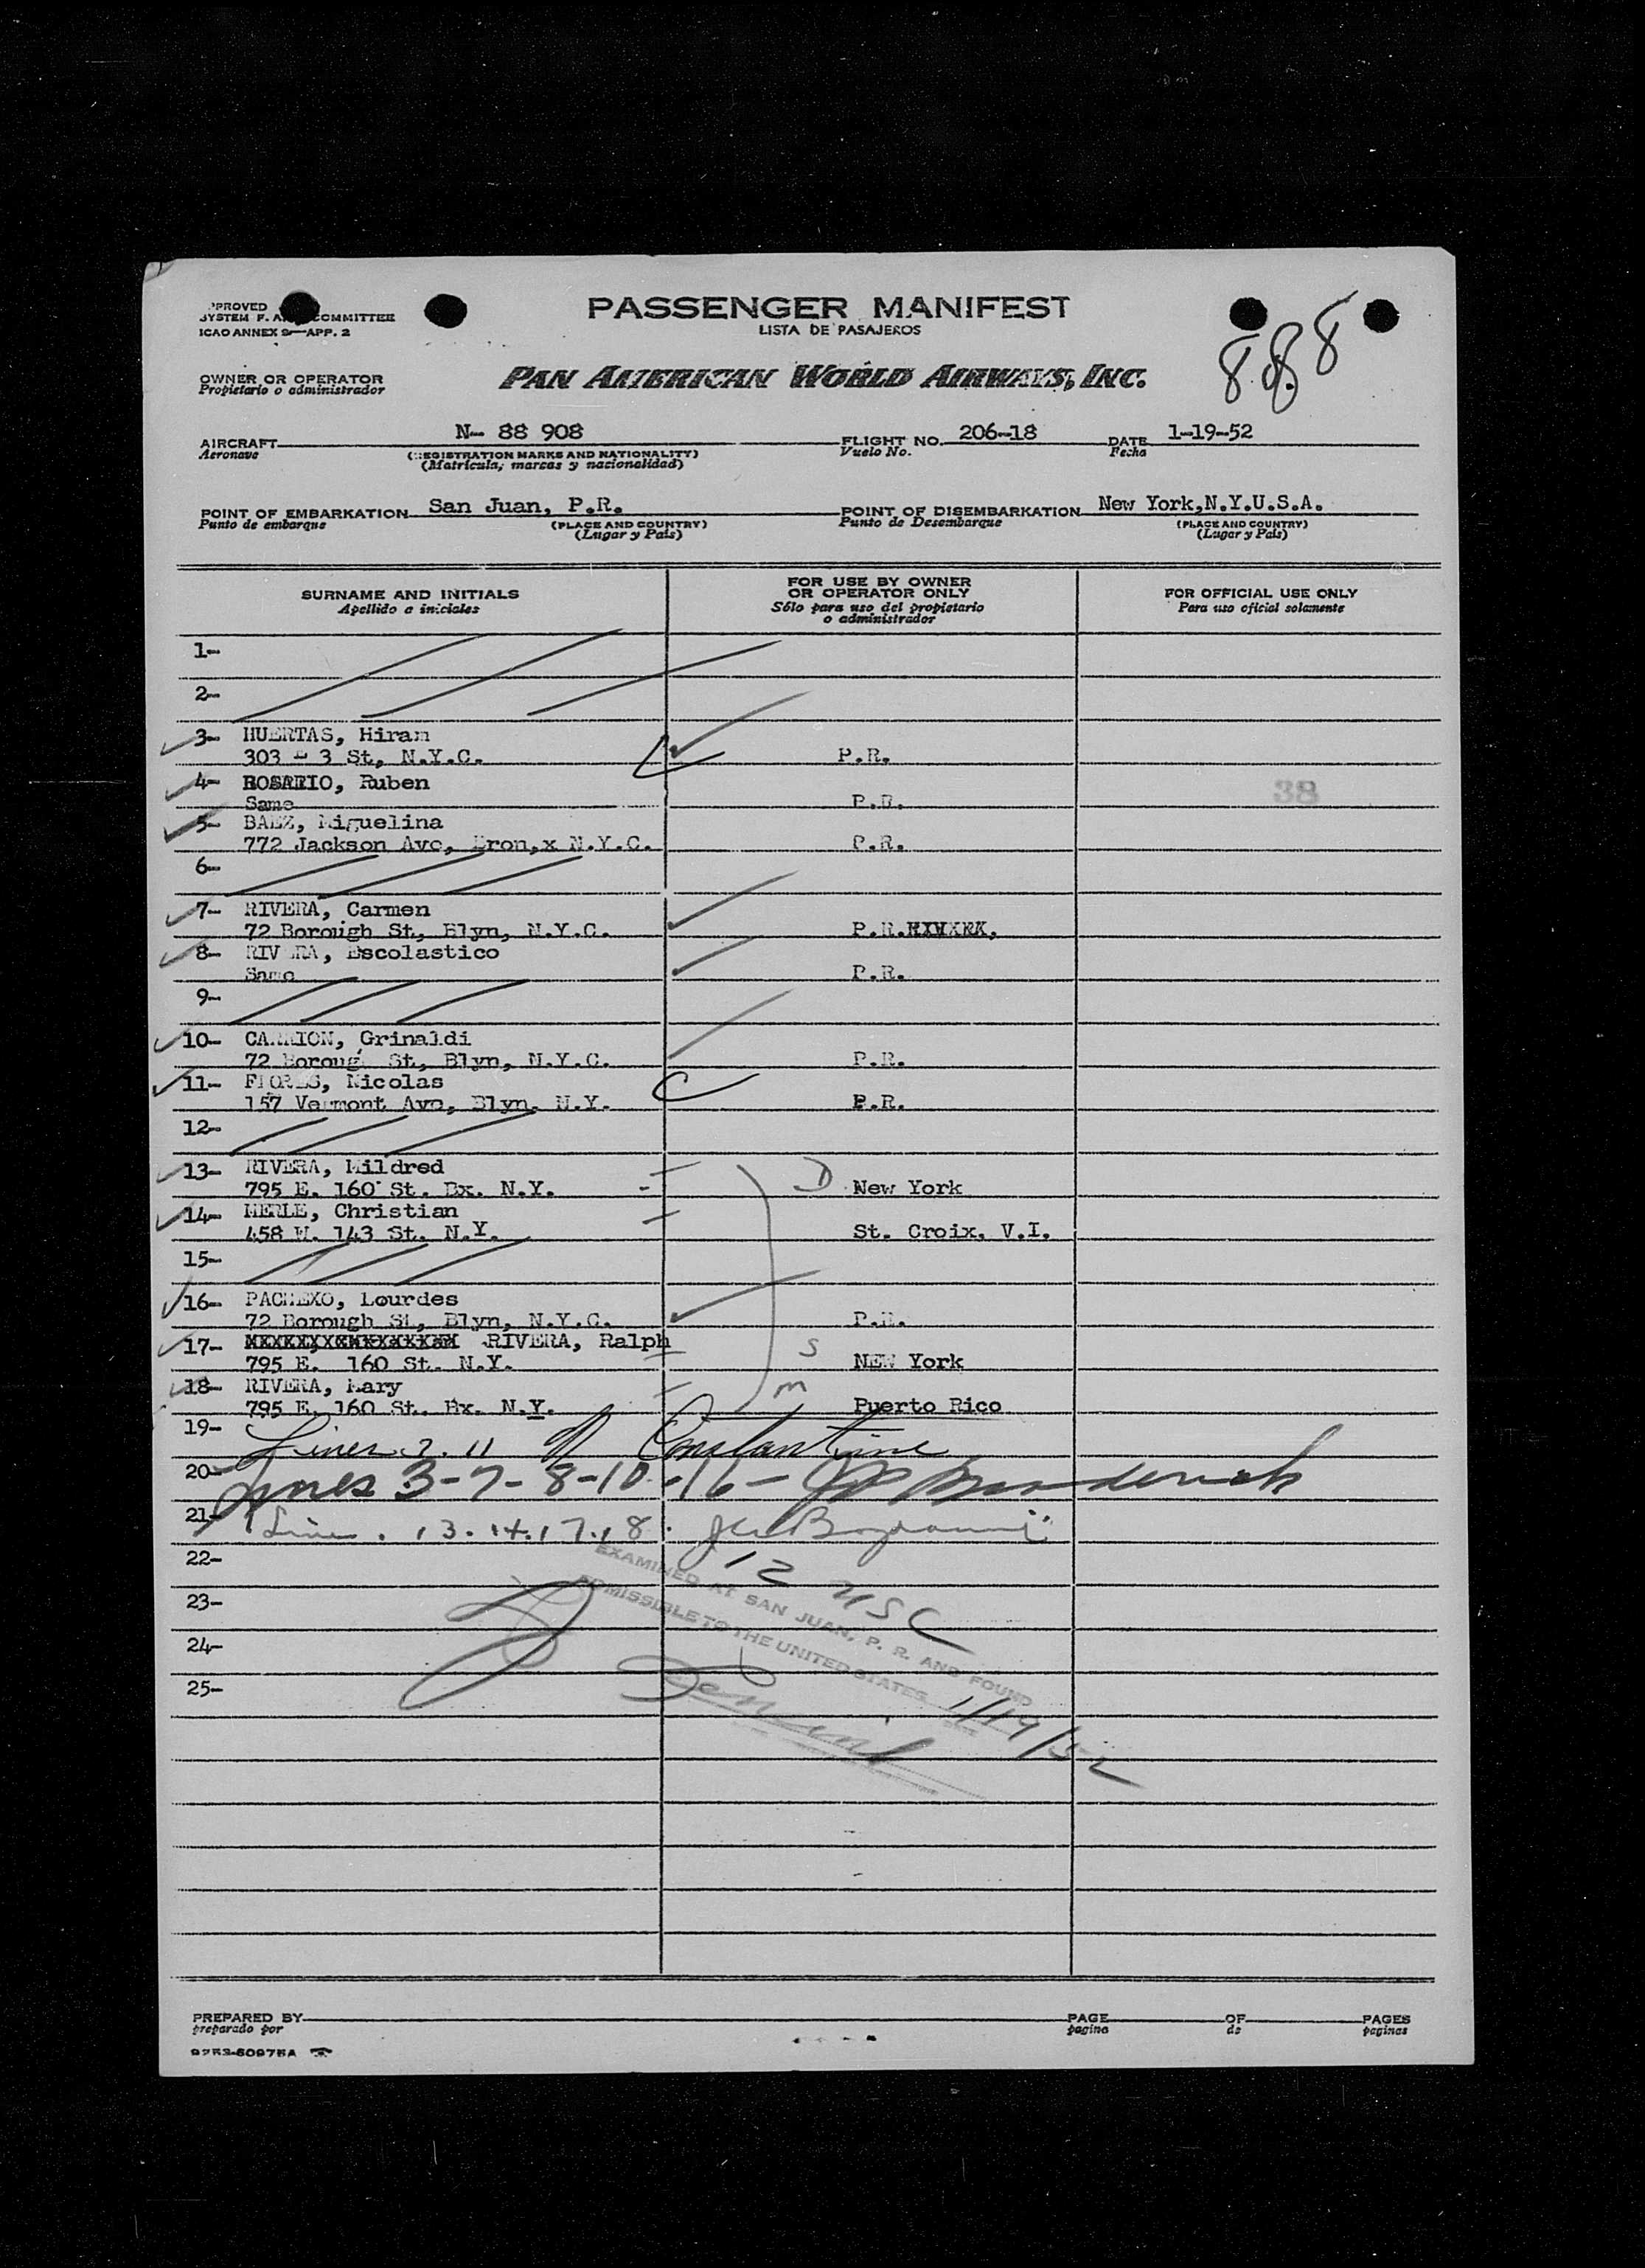 PASSENGER MANIFEST
LISTA DE PASAJEROS
SYSTEM F. COMMITTEE
ICAO ANNEX 9—APP. 2
888
OWNER OR OPERATOR
Propietario o administrador
PAN AMERICAN WORLD AIRWAYS, INC.
AIRCRAFT N- 88 908 FLIGHT NO. 206-18 DATE 1-19-52
Aeronave (REGISTRATION MARKS AND NATIONALITY) Vuelo No. Fecha
(Matrícula, marcas y nacionalidad)
POINT OF EMBARKATION San Juan, P.R. POINT OF DISEMBARKATION New York,N.Y.U.S.A.
Punto de embarque (PLACE AND COUNTRY) Punto de Desembarque (PLACE AND COUNTRY)
(Lugar y País) (Lugar y País)
SURNAME AND INITIALS FOR USE BY OWNER OR OPERATOR ONLY FOR OFFICIAL USE ONLY
Apellido e iniciales Sólo para uso del propietario o administrador Para uso oficial solamente
1-
2-
3- HUERTAS, Hiram
303 E 3 St, N.Y.C. P.R.
4- ROSARIO, Ruben
Same P.R. 38
5- BAEZ, Miguelina
772 Jackson Ave, Bron,x N.Y.C. P.R.
6-
7- RIVERA, Carmen
72 Borough St, Blyn, N.Y.C. P.R.
8- RIVERA, Escolastico
Same P.R.
9-
10- CARRION, Grinaldi
72 Borough St, Blyn, N.Y.C. P.R.
11- FLORES, Nicolas
157 Vermont Ave, Blyn, N.Y. P.R.
12-
13- RIVERA, Mildred
795 E. 160 St. Bx. N.Y. D New York
14- MERLE, Christian
458 W. 143 St. N.Y. St. Croix, V.I.
15-
16- PACHEXO, Lourdes
72 Borough St, Blyn, N.Y.C. P.R.
17- RIVERA, Ralph
795 E. 160 St. N.Y. S NEW York
18- RIVERA, Mary
795 E. 160 St. Bx. N.Y. M Puerto Rico
19- Lines 3. 11 Constantine
20- Lines 3-7-8-10-16-
21- Line. 13.14.17.18.
22- 12 USC
23-
24-
25-
EXAMINED AT SAN JUAN, P. R. AND FOUND
ADMISSIBLE TO THE UNITED STATES 1/19/52
DATE
PREPARED BY PAGE OF PAGES
preparado por pagina de paginas